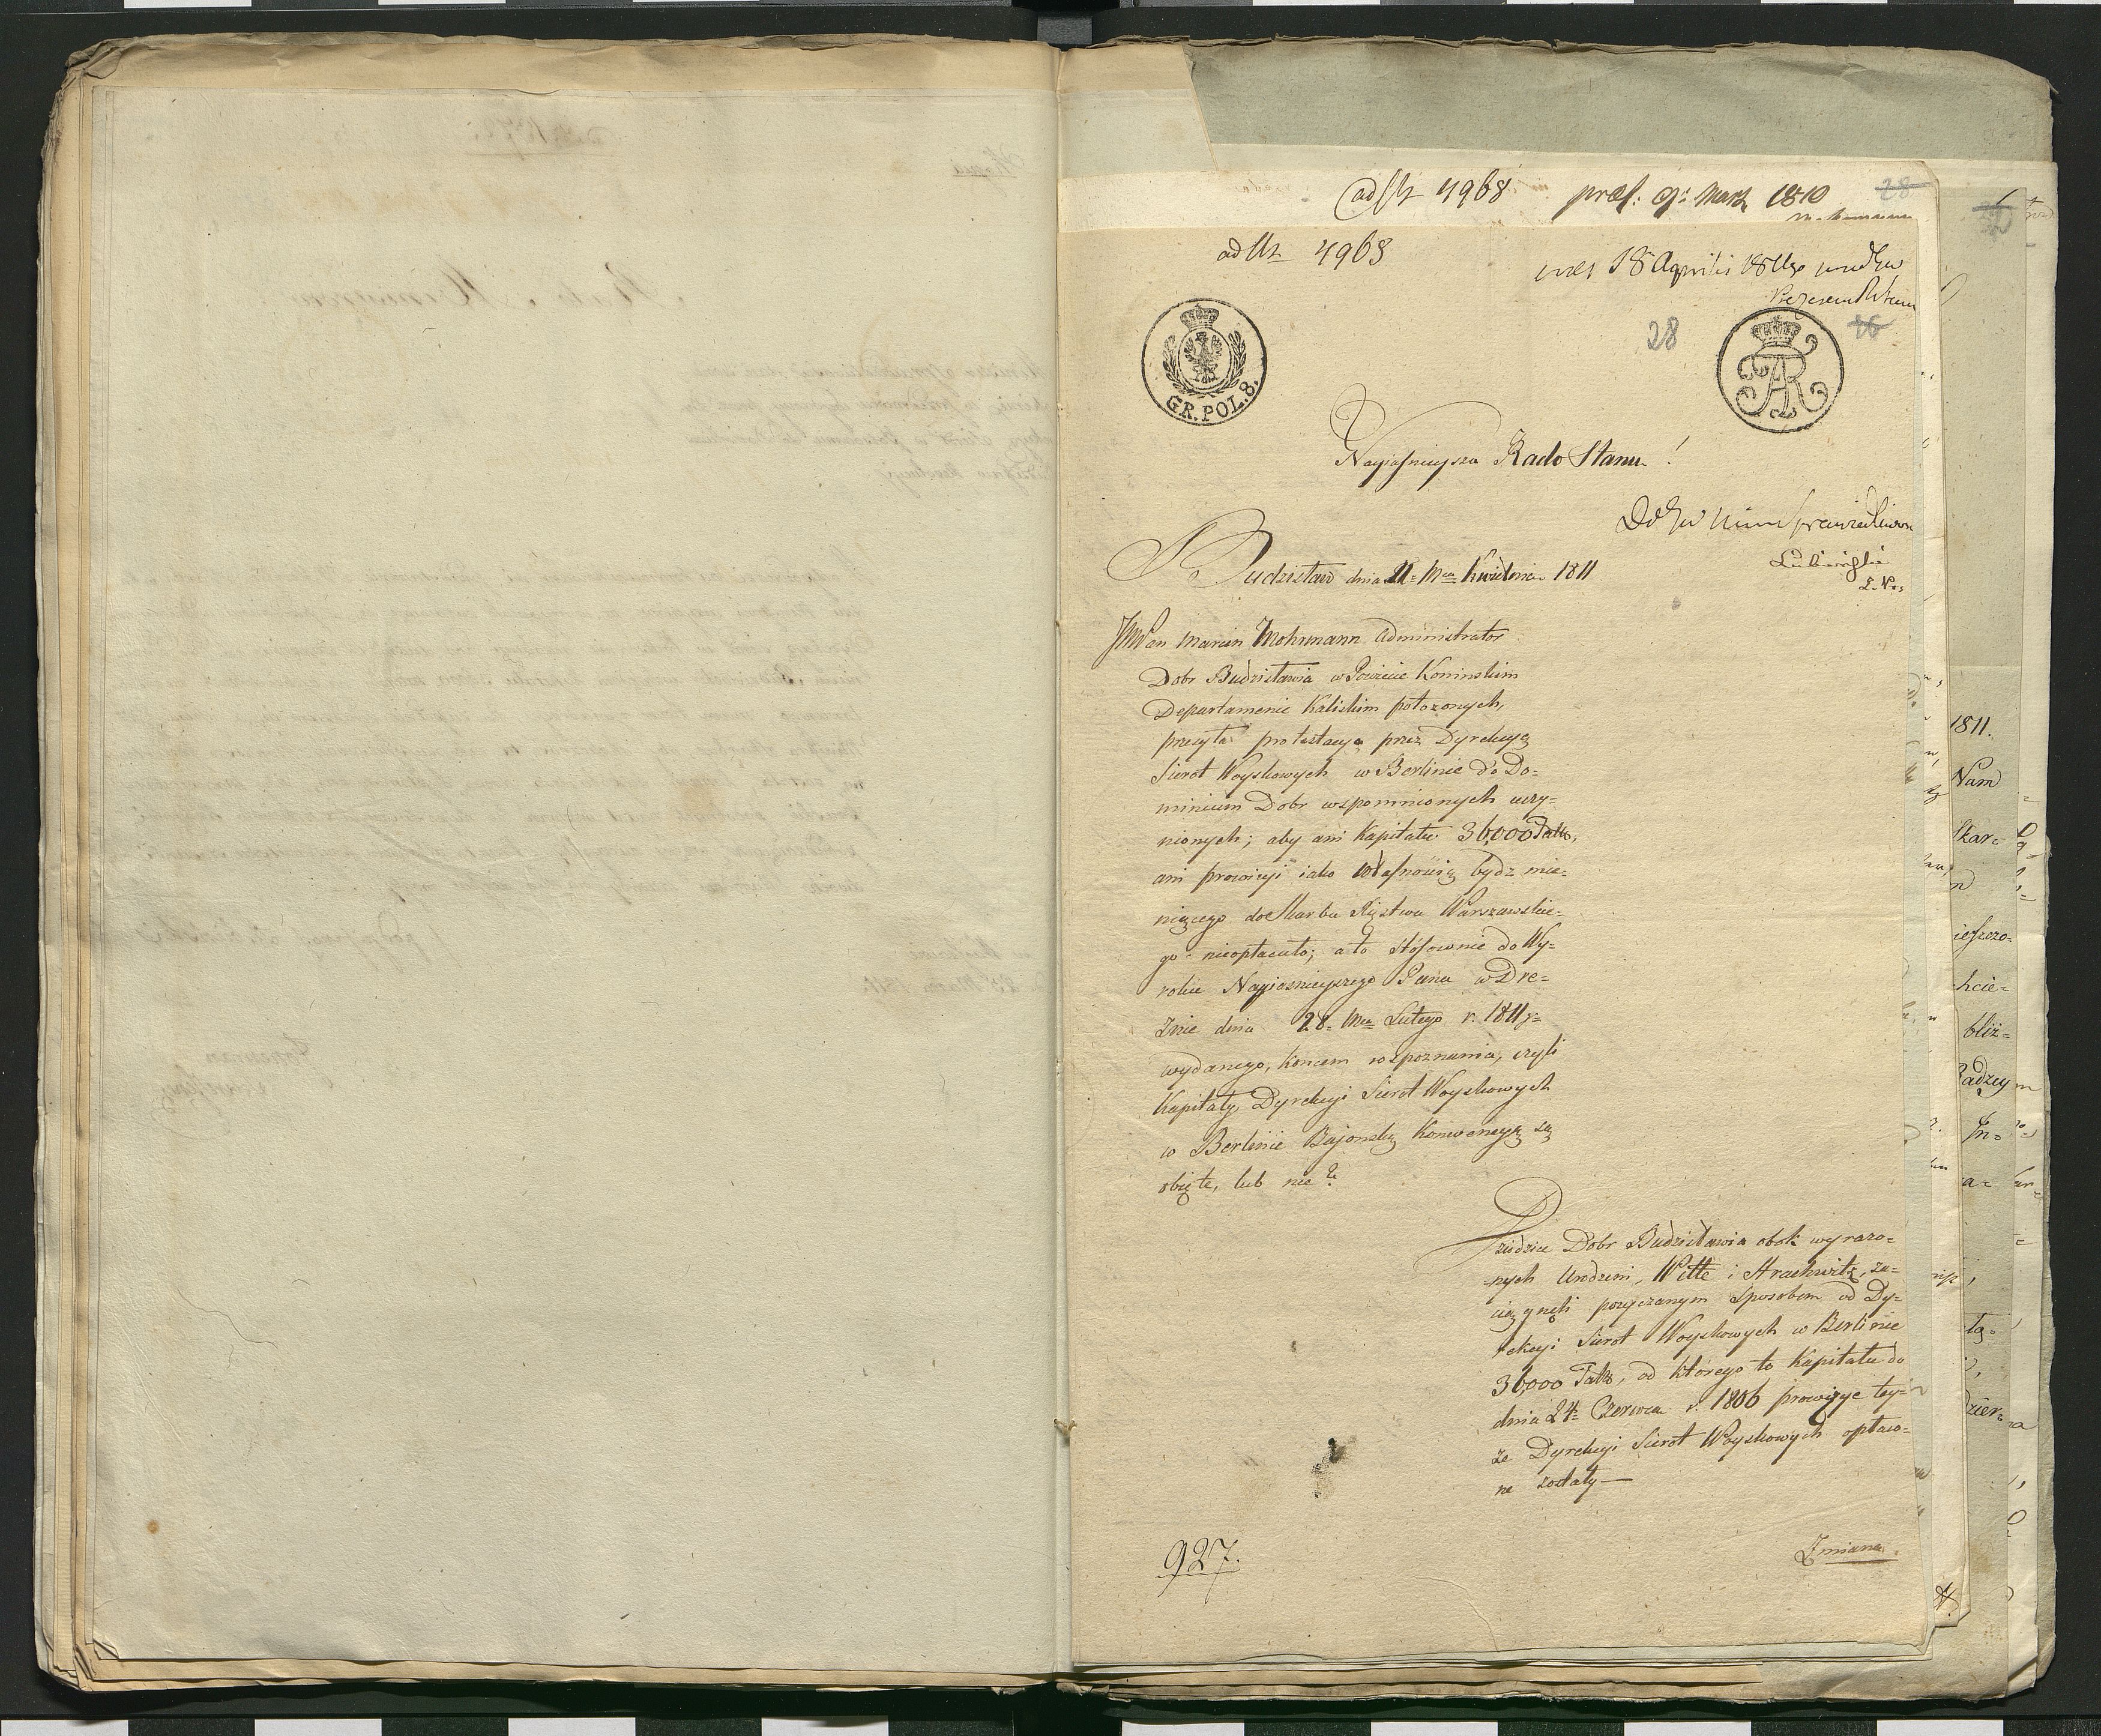 ad Nr 4968
28
ad Nr 4968
18 Aprilis
28
GR. POL. 8.
AR
Nayiaśnieysza Rado Stanu!
Budzisław dnia 11= Mca Kwietnia 1811
JW Pan Marcin Mohrmann Administrator
Dobr Budzisławia w Powiecie Koninskim
Departamencie Kaliskim położonych,
protestacya przez Dyrekcyą
Sierot Woyskowych w Berlinie do Do=
minium Dobr wspomnionych uczy=
nionych; aby ani Kapitału 36,000 Talr,
ani prowizyi iako własnością bydz mie=
niącego do Skarbu Xięstwa Warszawskie=
go nieopłacało; a to stosownie do Wy=
roku Nayiaśnieyszego Pana w Dre=
znie dnia 28= Mca Lutego r. 1811 r=
wydanego, koncem rozpoznania, czyli
Kapitały Dyrekcyi Sierot Woyskowych
w Berlinie Bajonską Konwencyą są
obięte, lub nie?
Dziedzice Dobr Budzisławia obok wyrazo=
nych Urodzeni, Wette i Strachwitz, za=
ciągnęli pozyczanym sposobem od Dy=
rekcyi Sierot Woyskowych w Berlinie
36,000 Talr, od którego to Kapitału do
dnia 24= Czerwca r. 1806 prowizye tey=
ze Dyrekcyi Sierot Woyskowych opłaco=
ne zostały—
927.
Zmiana
1811.
Nam
Skar=
ieszczo=
bliż=